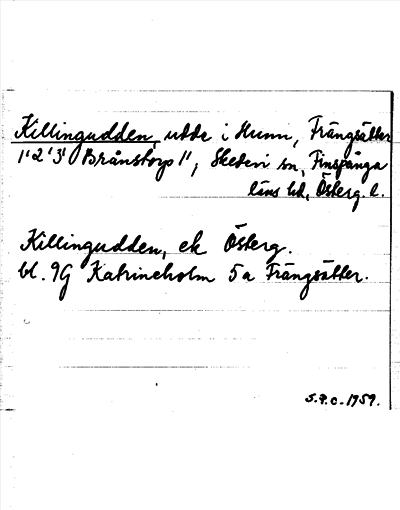 Killingudden, udde i Hunn, Trängsätter
1¹2¹3¹ Brånstorp 1¹, Skedevi sn, Finspånga
läns hd, Österg. l.
Killingudden, ek Österg.
bl. 9G Katrineholm 5a Trängsätter.
S.P.C. 1959.